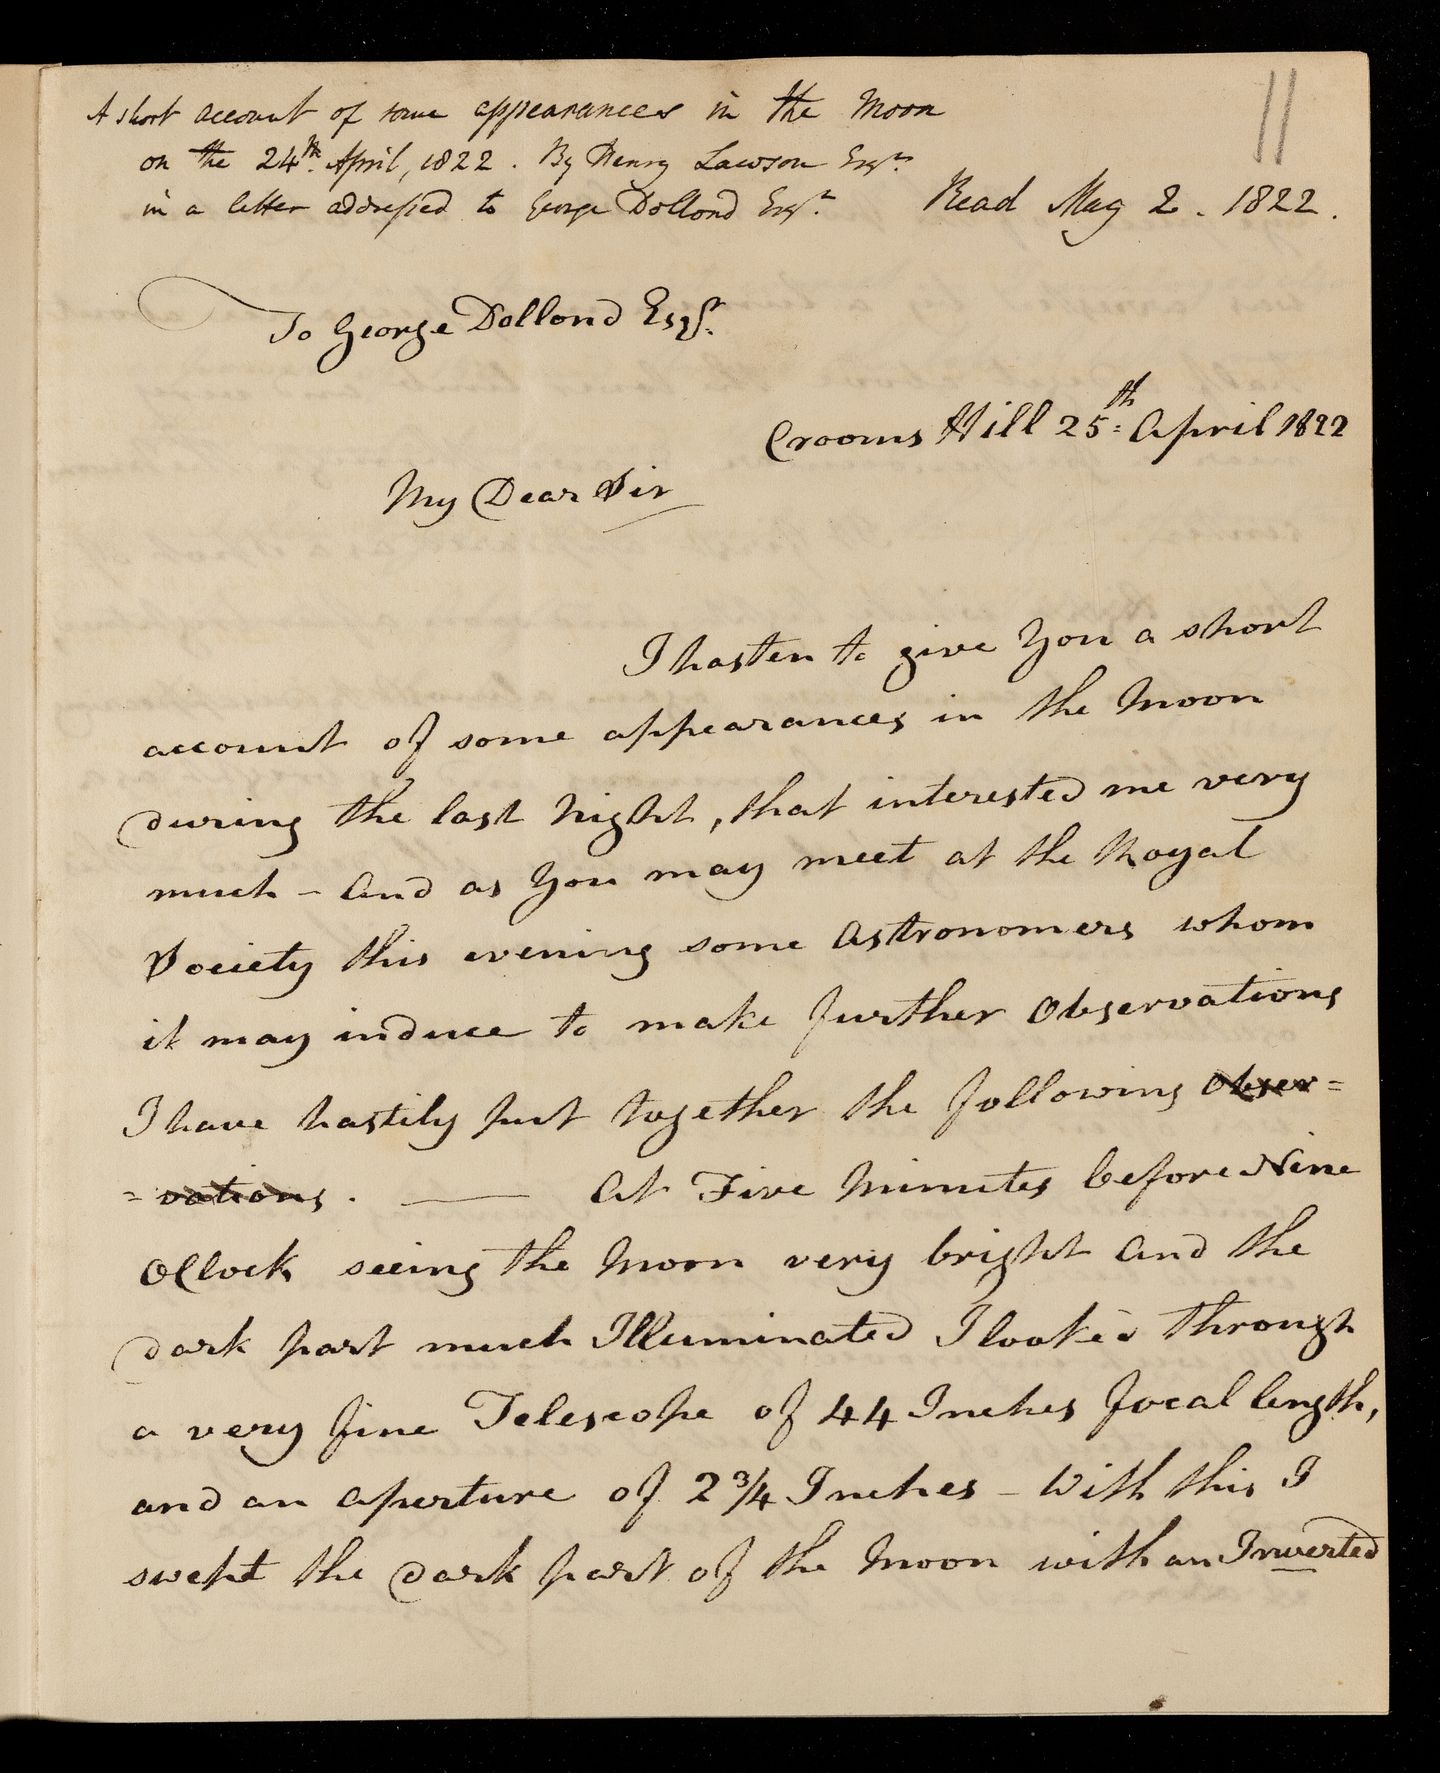 11
A short account of some appearances in the Moon
on the 24th. April, 1822. By Henry Lawson Esqr.
in a letter addressed to George Dollond Esqr.
Read May 2. 1822.
To George Dollond Esqr.
Crooms Hill 25th: April 1822
My Dear Sir
I hasten to give You a short
account of some appearances in the Moon
during the last Night, that interested me very
much – And as You may meet at the Royal
Society this evening some Astronomers whom
it may induce to make further Observations
I have hastily put together the following Obser=
=vations. — At Five Minutes before Nine
OClock seeing the Moon very bright And the
dark part much Illuminated I looked through
a very fine Telescope of 44 Inches focal length,
and an aperture of 2 3/4 Inches – With this I
swept the dark part of the Moon with an Inverted